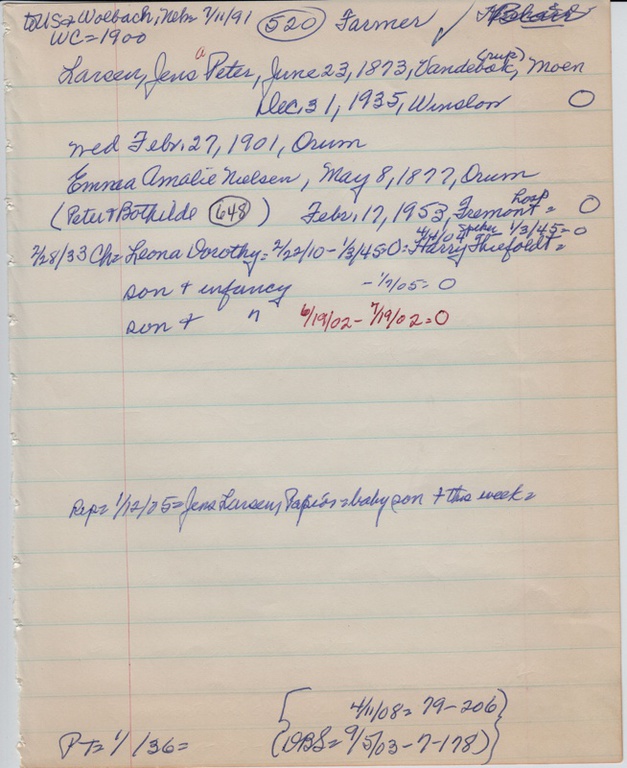 to USA = Wolbach, Nebr 7/11/91 (520) Farmer ✓
WC = 1900
a
Larsen, Jens Peter, June 23, 1873, Vandebok, Moen
Dec. 31, 1935, Winslow O
wed Febr. 27, 1901, Orum
Emma Amalie Nielsen, May 8, 1877, Orum
hosp
(Peter & Bothilde (648)) Febr. 17, 1953, Fremont = O
4/4/04 1/3/45 = O
2/28/33 Ch = Leona Dorothy = 2/22/10 - 1/3/45 O = Harry Thiefoldt =
son + infancy - 1/7/05 = O
son + " 6/19/02 - 7/19/02 = O
Rep = 1/12/05 = Jens Larsen, = baby son + this week =
4/11/08 = 79-206
PT = 1/ /36 = (DBS = 9/5/03-7-178)